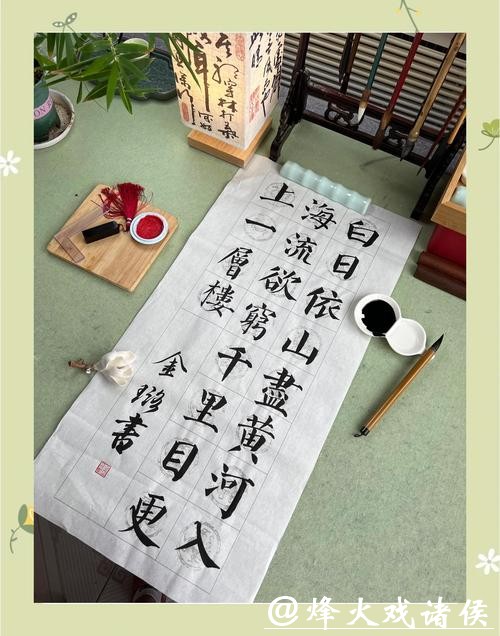 白日依山盡黄河入
海流欲窮千里目更
上一層樓
金璐書
@烽火戏诸侯